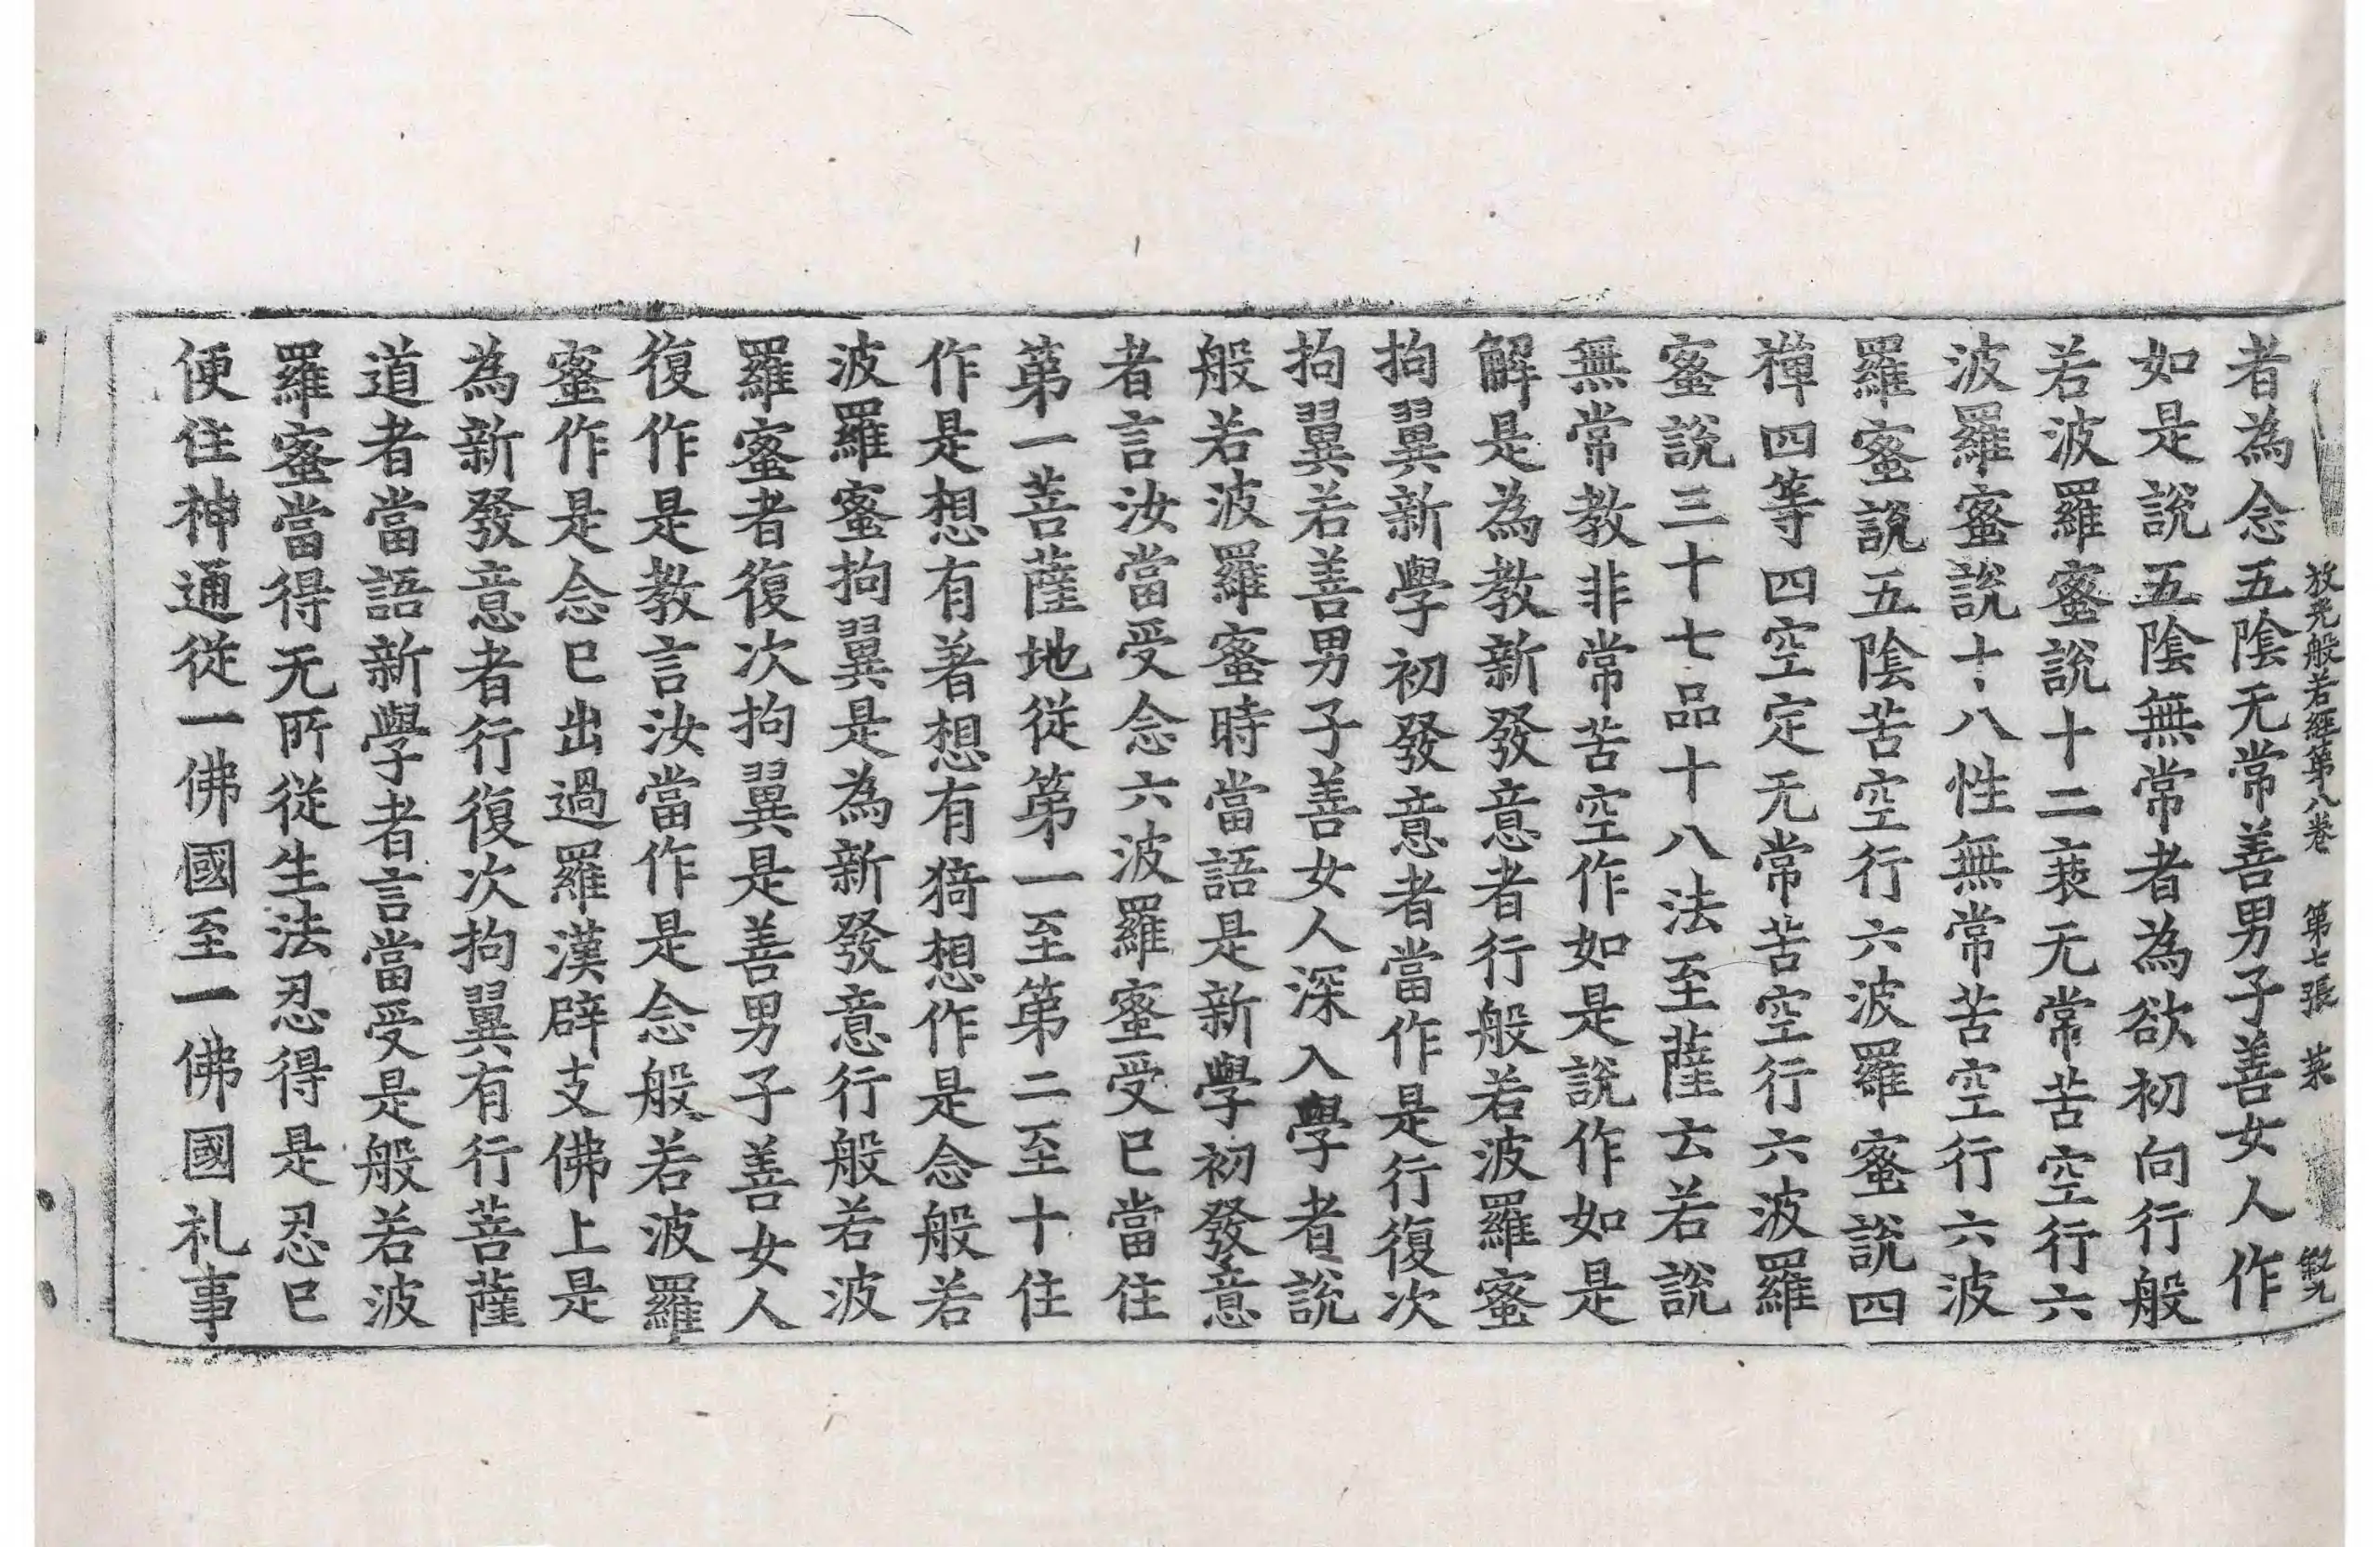 放光般若經第八卷 第七張 菜
者為念五陰无常善男子善女人作
如是說五陰無常者為欲初向行般
若波羅蜜說十二衰无常苦空行六
波羅蜜說十八性無常苦空行六波
羅蜜說五陰苦空行六波羅蜜說四
禪四等四空定无常苦空行六波羅
蜜說三十七品十八法至薩云若說
無常教非常苦空作如是說作如是
解是為教新發意者行般若波羅蜜
拘翼新學初發意者當作是行復次
拘翼若善男子善女人深入學者說
般若波羅蜜時當語是新學初發意
者言汝當受念六波羅蜜受已當住
第一菩薩地從第一至第二至十住
作是想有著想有猗想作是念般若
波羅蜜拘翼是為新發意行般若波
羅蜜者復次拘翼是善男子善女人
復作是教言汝當作是念般若波羅
蜜作是念已出過羅漢辟支佛上是
為新發意者行復次拘翼有行菩薩
道者當語新學者言當受是般若波
羅蜜當得无所從生法忍得是忍已
便住神通從一佛國至一佛國礼事